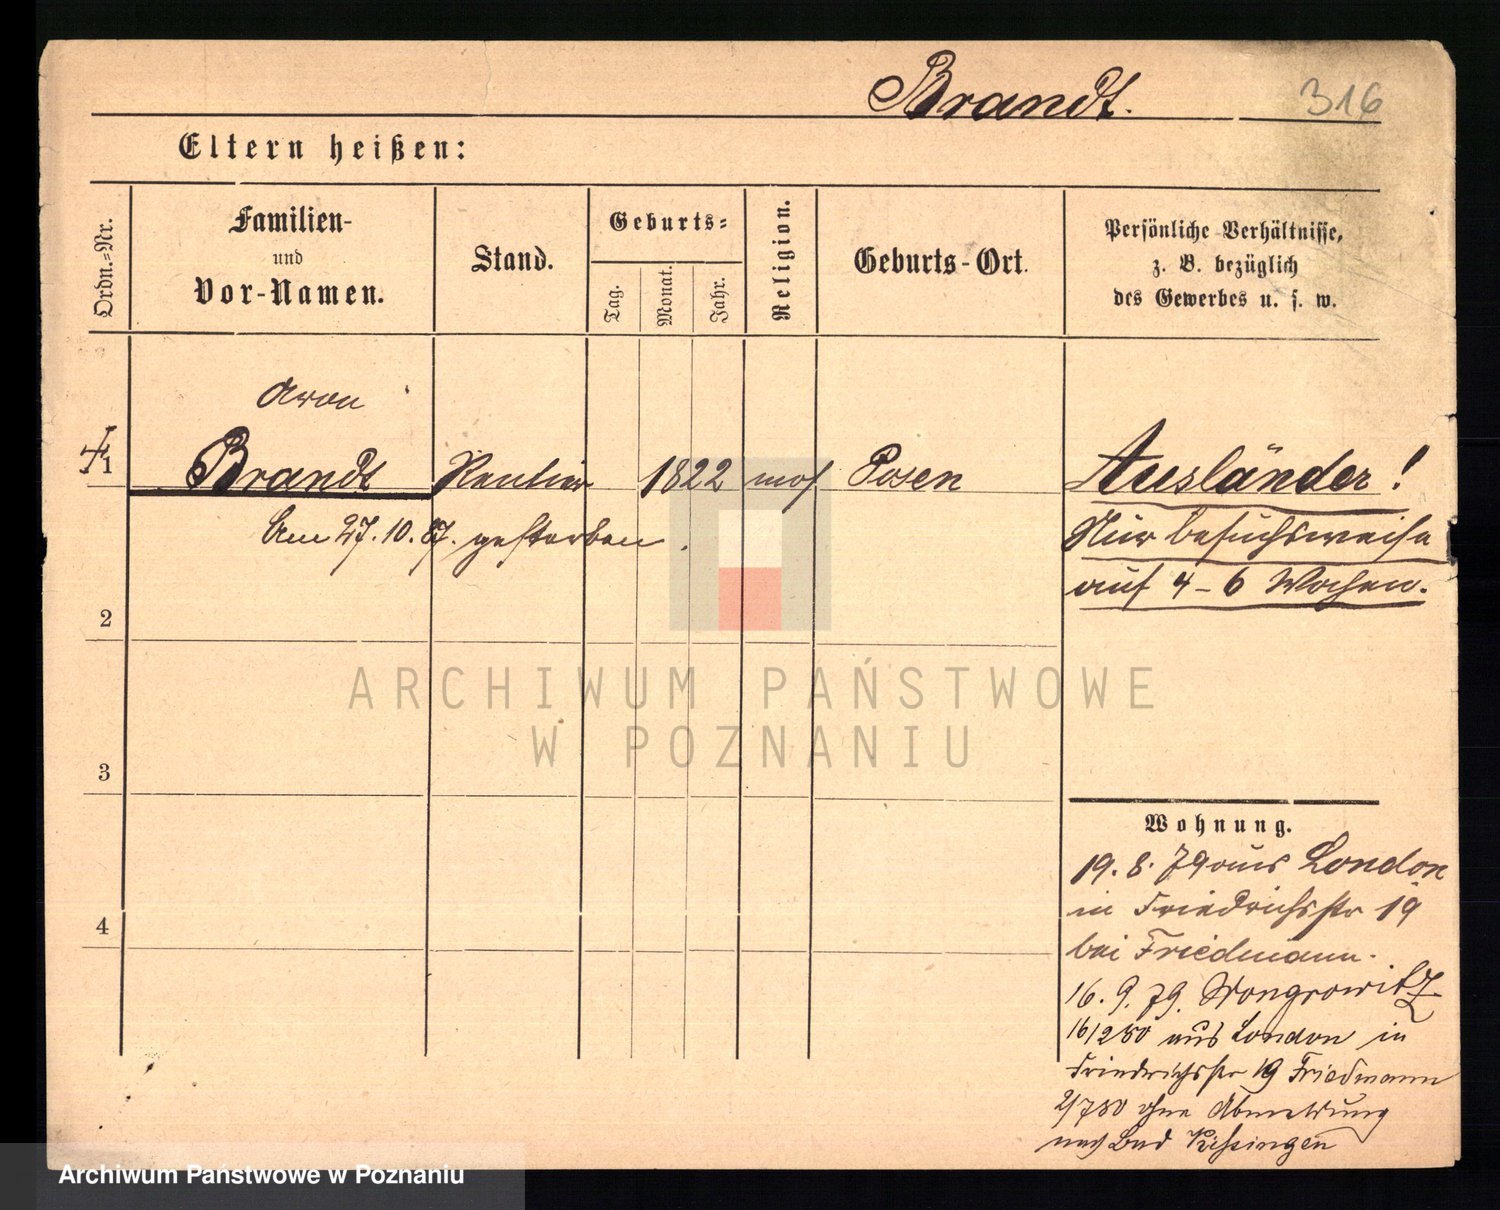 Brandt.
316
Eltern heißen:
Ordn.=Nr.
Familien-
und
Vor-Namen.
Stand.
Geburts=
Tag.
Monat.
Jahr.
Religion.
Geburts-Ort.
Persönliche Verhältnisse,
z. B. bezüglich
des Gewerbes u. s. w.
Aron
1 Brandt Rentier 1822 mos Posen
Am 27.10.87. gestorben.
Ausländer!
Nur besuchsweise
auf 4-6 Wochen.
2
3
4
ARCHIWUM PAŃSTWOWE
W POZNANIU
Wohnung.
19.8.79 aus London
in Friedrichsstr 19
bei Friedmann.
16.9.79. Wongrowitz
16/2 80 aus London in
Friedrichsstr 19 Friedmann
2/7 80 ohne Abmeldung
nach Bad Kissingen
Archiwum Państwowe w Poznaniu